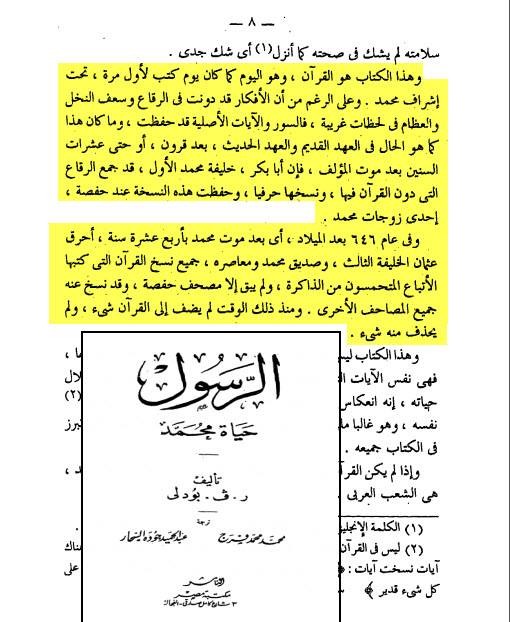 — ٨ —
سلامته لم يشك فى صحته كما أنزل(١) أى شك جدى .
وهذا الكتاب هو القرآن ، وهو اليوم كما كان يوم كتب لأول مرة ، تحت
إشراف محمد . وعلى الرغم من أن الأفكار قد دونت فى الرقاع وسعف النخل
والعظام فى لحظات غريبة ، فالسور والآيات الأصلية قد حفظت ، وما كان هذا
كما هو الحال فى العهد القديم والعهد الحديث ، بعد قرون ، أو حتى عشرات
السنين بعد موت المؤلف ، فإن أبا بكر ، خليفة محمد الأول ، قد جمع الرقاع
التى دون القرآن فيها ، ونسخها حرفيا ، وحفظت هذه النسخة عند حفصة ،
إحدى زوجات محمد .
وفى عام ٦٤٦ بعد الميلاد ، أى بعد موت محمد بأربع عشرة سنة ، أحرق
عثمان الخليفة الثالث ، وصديق محمد ومعاصره ، جميع نسخ القرآن التى كتبها
الأتباع المتحمسون من الذاكرة ، ولم يبق إلا مصحف حفصة ، وقد نسخ عنه
جميع المصاحف الأخرى . ومنذ ذلك الوقت لم يضف إلى القرآن شىء ، ولم
يحذف منه شىء .
وهذا الكتاب
فهى نفس الآيات
حياته ، إنه انعكاس
(٢)
نفسه ، وهو غالبا
فى الكتاب جميعه .
وإذا لم يكن
هى الشعب العربى
(١) الكلمة
(٢) ليس فى القرآن
آيات نسخت آيات :
على
كل شىء قدير ﴾
الرسول
حياة محمد
تأليف
ر . ف . بودلى
ترجمة
محمد محمد فرج
عبد الحميد جوده السحار
الناشر
مكتبة مصر
٣ شارع كامل صدقى - الفجالة